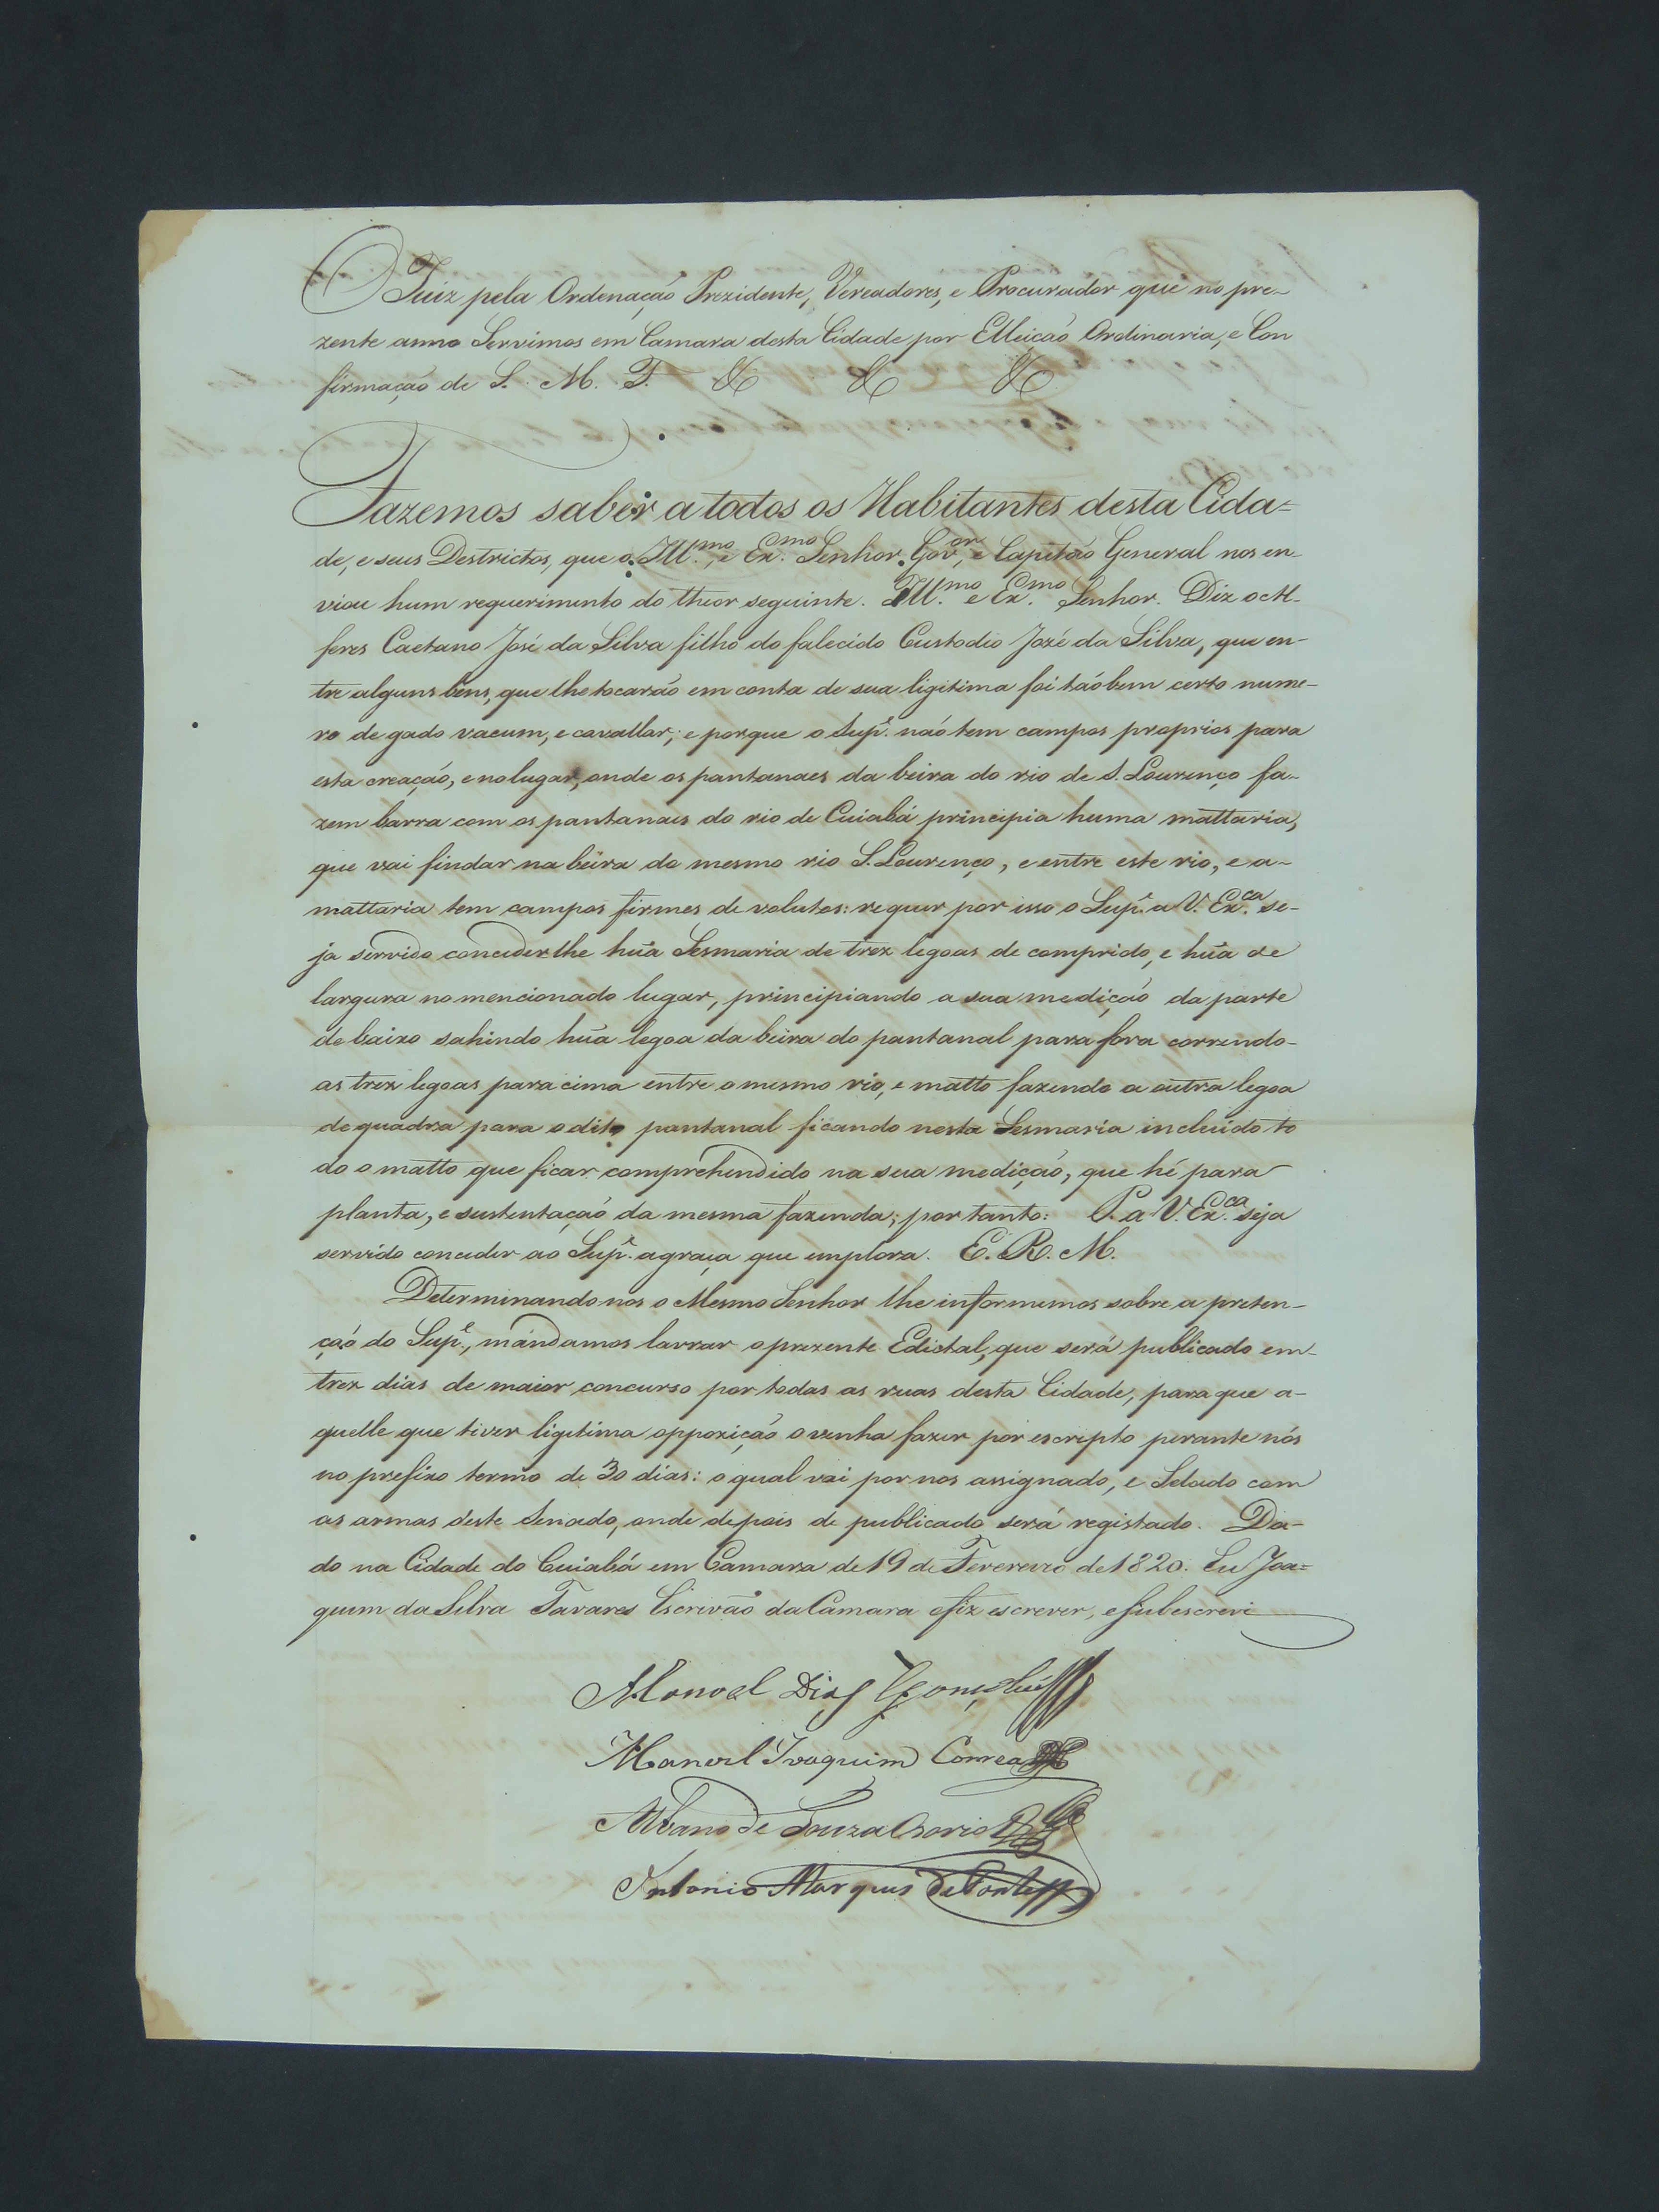 O Juiz pela Ordenação Prezidente, Vereadores, e Procurador que no pre-
zente anno Servimos em Camara desta Cidade por Elleição Ordinaria, e Con
firmação de S. M. F. &c &c &c
Fazemos saber a todos os Habitantes desta Cida=
de, e seus Destrictos, que o Ill.mo, e Ex.mo Senhor Gov.or, e Capitão General nos en-
viou hum requerimento do theor seguinte. Ill.mo e Ex.mo Senhor. Diz o Al-
feres Caetano José da Silva filho do falecido Custodio Jozé da Silva, que en-
tre alguns bens, que lhe tocarão em conta de sua ligitima foi taóbem certo nume-
ro de gado vacum, e cavallar; e porque o Sup.e naó tem campos proprios para
esta creaçaó, e no lugar, onde os pantanaes da beira do rio de S. Lourenço fa-
zem barra com os pantanaes do rio de Cuiabá principia huma mattaria,
que vai findar na beira do mesmo rio S. Lourenço, e entre este rio, e a-
mattaria tem campos firmes de volutos: requer por isso o Sup.e a V. Ex.ca se-
ja servido conceder lhe hũa Sesmaria de trez legoas de comprido, e hũa de
largura no mencionado lugar, principiando a sua mediçaó da parte
de baixo sahindo hũa legoa da beira do pantanal para fora correndo-
as trez legoas para cima entre o mesmo rio, e matto fazendo a outra legoa
de quadra para o dito pantanal ficando nesta Sesmaria incluido to
do o matto que ficar comprehendido na sua mediçaó, que hé para
planta, e sustentaçaó da mesma fazenda; por tanto: P. a V. Ex.ca seja
servido conceder ao Sup.e a graça que implora. E. R. M.
Determinando-nos o Mesmo Senhor lhe informemos sobre a preten-
çaó do Sup.e, mandamos lavrar o prezente Edictal, que será publicado em-
trez dias de maior concurso por todas as ruas desta Cidade, para que a-
quelle que tiver ligitima oppoziçaó o venha fazer por escripto perante nós
no prefixo termo de 30 dias: o qual vai por nos assignado, e Selado com
as armas deste Senado, onde depois de publicado será registado. Da-
do na Cidade do Cuiabá em Camara de 19 de Fevereiro de 1820. Eu Joa=
quim da Silva Tavares Escrivão da Camara o fiz escrever, e subescrevi
Manoel Dias
Manoel Joaquim Correa
Albano de Souza Osorio
Antonio Marques de Pontes